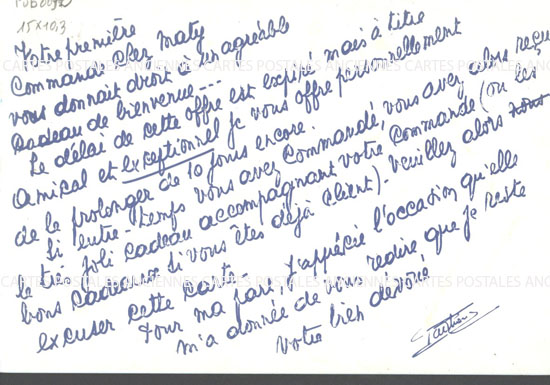 15x10,3
Votre première
Commande Cher Maty
vous donnait droit à un agréable
Cadeau de bienvenue---
Le délai de cette offre est expiré mais à titre
Amical et exceptionnel je vous offre personnellement
de le prolonger de 10 jours encore.
Si entre-temps vous avez commandé, vous avez alors reçu
le très joli cadeau accompagnant votre commande (ou les
bons cadeaux si vous êtes déjà client). Veuillez alors nous
excuser cette carte.
Pour ma part, j'apprécie l'occasion qu'elle
m'a donnée de vous redire que je reste
votre bien dévoué
CARTES POSTALES ANCIENNES CARTES POSTALES ANCIENNES
CARTES POSTALES ANCIENNES CARTES POSTALES ANCIENNES